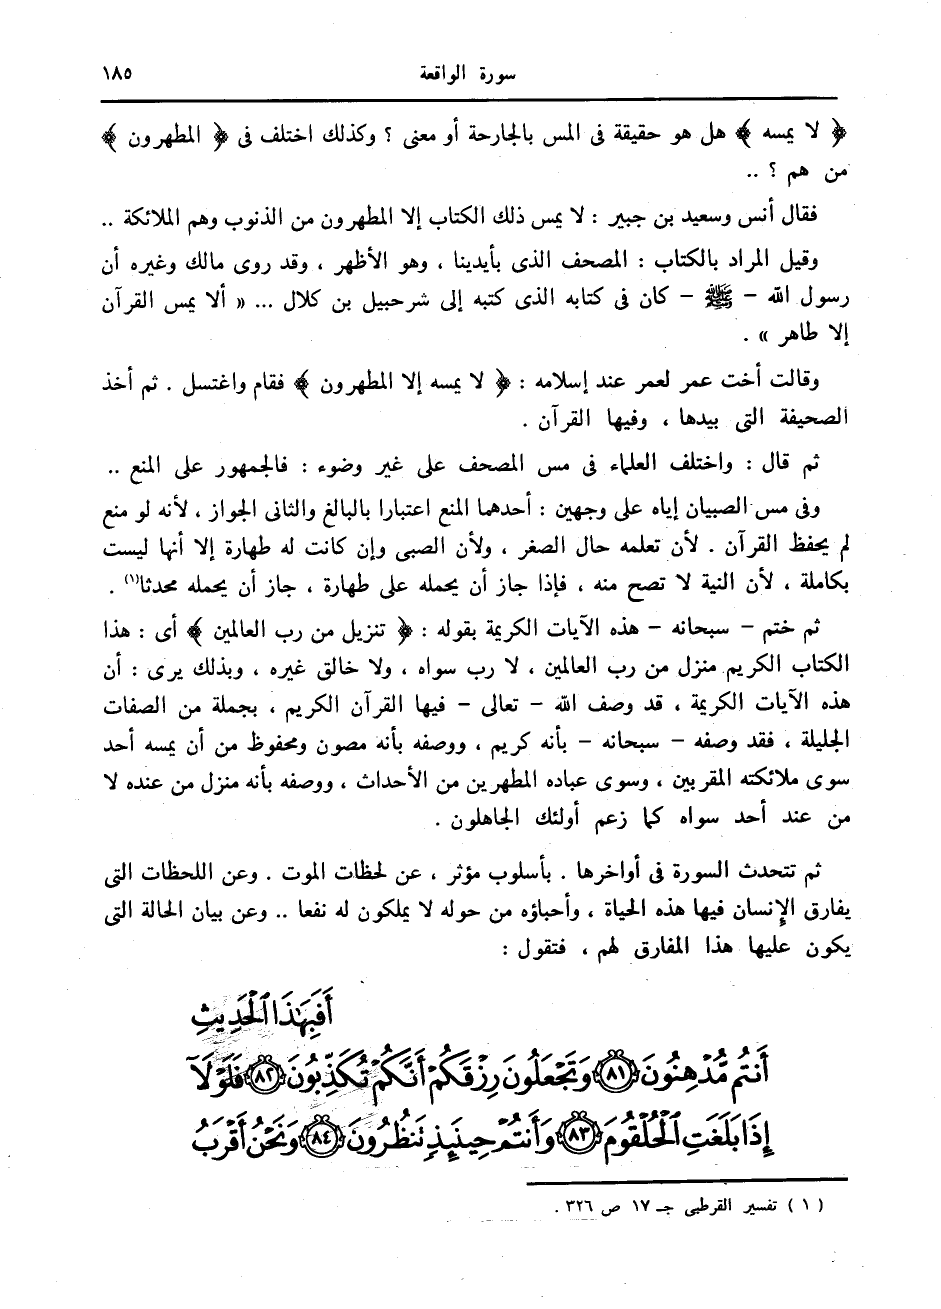 سورة الواقعة ١٨٥
﴿ لا يمسه ﴾ هل هو حقيقة فى المس بالجارحة أو معنى ؟ وكذلك اختلف فى ﴿ المطهرون ﴾
من هم ؟ ..
فقال أنس وسعيد بن جبير : لا يمس ذلك الكتاب إلا المطهرون من الذنوب وهم الملائكة ..
وقيل المراد بالكتاب : المصحف الذى بأيدينا ، وهو الأظهر ، وقد روى مالك وغيره أن
رسول الله - ﷺ - كان فى كتابه الذى كتبه إلى شرحبيل بن كلال ... « ألا يمس القرآن
إلا طاهر » .
وقالت أخت عمر لعمر عند إسلامه : ﴿ لا يمسه إلا المطهرون ﴾ فقام واغتسل . ثم أخذ
الصحيفة التى بيدها ، وفيها القرآن .
ثم قال : واختلف العلماء فى مس المصحف على غير وضوء : فالجمهور على المنع ..
وفى مس الصبيان إياه على وجهين : أحدهما المنع اعتبارا بالبالغ والثانى الجواز ، لأنه لو منع
لم يحفظ القرآن . لأن تعلمه حال الصغر ، ولأن الصبى وإن كانت له طهارة إلا أنها ليست
بكاملة ، لأن النية لا تصح منه ، فإذا جاز أن يحمله على طهارة ، جاز أن يحمله محدثا(١) .
ثم ختم - سبحانه - هذه الآيات الكريمة بقوله : ﴿ تنزيل من رب العالمين ﴾ أى : هذا
الكتاب الكريم منزل من رب العالمين ، لا رب سواه ، ولا خالق غيره ، وبذلك يرى : أن
هذه الآيات الكريمة ، قد وصف الله - تعالى - فيها القرآن الكريم ، بجملة من الصفات
الجليلة ، فقد وصفه - سبحانه - بأنه كريم ، ووصفه بأنه مصون ومحفوظ من أن يمسه أحد
سوى ملائكته المقربين ، وسوى عباده المطهرين من الأحداث ، ووصفه بأنه منزل من عنده لا
من عند أحد سواه كما زعم أولئك الجاهلون .
ثم تتحدث السورة فى أواخرها . بأسلوب مؤثر ، عن لحظات الموت . وعن اللحظات التى
يفارق الإنسان فيها هذه الحياة ، وأحباؤه من حوله لا يملكون له نفعا .. وعن بيان الحالة التى
يكون عليها هذا المفارق لهم ، فتقول :
أَفَبِهَٰذَا ٱلْحَدِيثِ
أَنتُم مُّدْهِنُونَ ٨١ وَتَجْعَلُونَ رِزْقَكُمْ أَنَّكُمْ تُكَذِّبُونَ ٨٢ فَلَوْلَآ
إِذَا بَلَغَتِ ٱلْحُلْقُومَ ٨٣ وَأَنتُمْ حِينَئِذٍ تَنظُرُونَ ٨٤ وَنَحْنُ أَقْرَبُ
( ١ ) تفسير القرطبى جـ ١٧ ص ٣٢٦ .